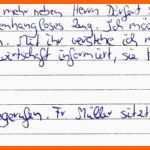 mehr neben Herrn Dirfant
enhangloses Zeug. Ich mö
. Mit ihr verstehe ich m
wirtschaft informiert, sie
gerufen. Fr Müller sitzt